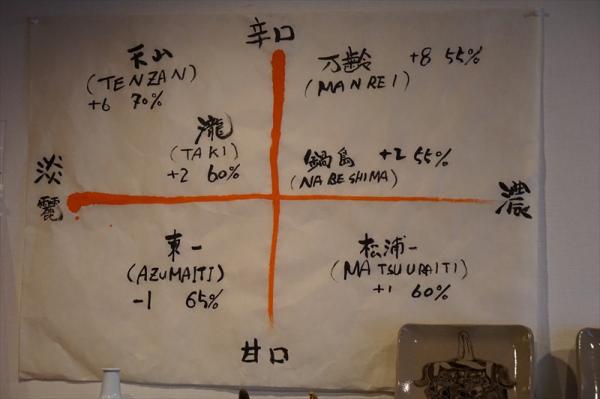 辛口
天山
(TENZAN)
+6 70%
万齢 +8 55%
(MANREI)
瀧
(TAKI)
+2 60%
鍋島 +2 55%
(NABESHIMA)
淡麗
濃
東一
(AZUMAITI)
-1 65%
松浦一
(MATSUURAITI)
+1 60%
甘口